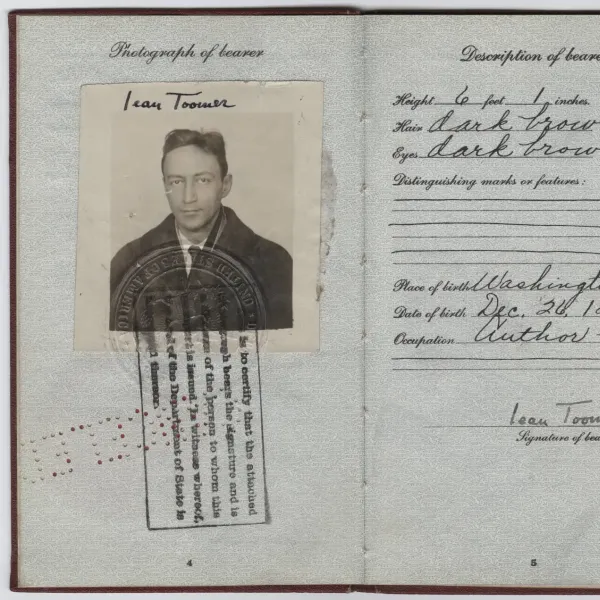 Photograph of bearer
Jean Toomer
UNITED STATES OF AMERICA
is to certify that the attached
bears the signature and is
of the person to whom this
is issued. In witness whereof,
of the Department of State is
4
Description of beare
Height 6 feet 1 inches.
Hair dark brow
Eyes dark brow
Distinguishing marks or features:
Place of birth Washingt
Date of birth Dec. 26, 1
Occupation Author
Jean Toom
Signature of bea
5